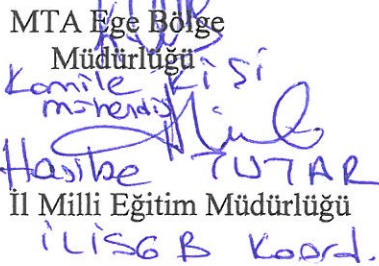 MTA Ege Bölge
Müdürlüğü
Kamile KİŞİ
mühendis
Hasibe TUTAR
İl Milli Eğitim Müdürlüğü
İLİSGB Koord.